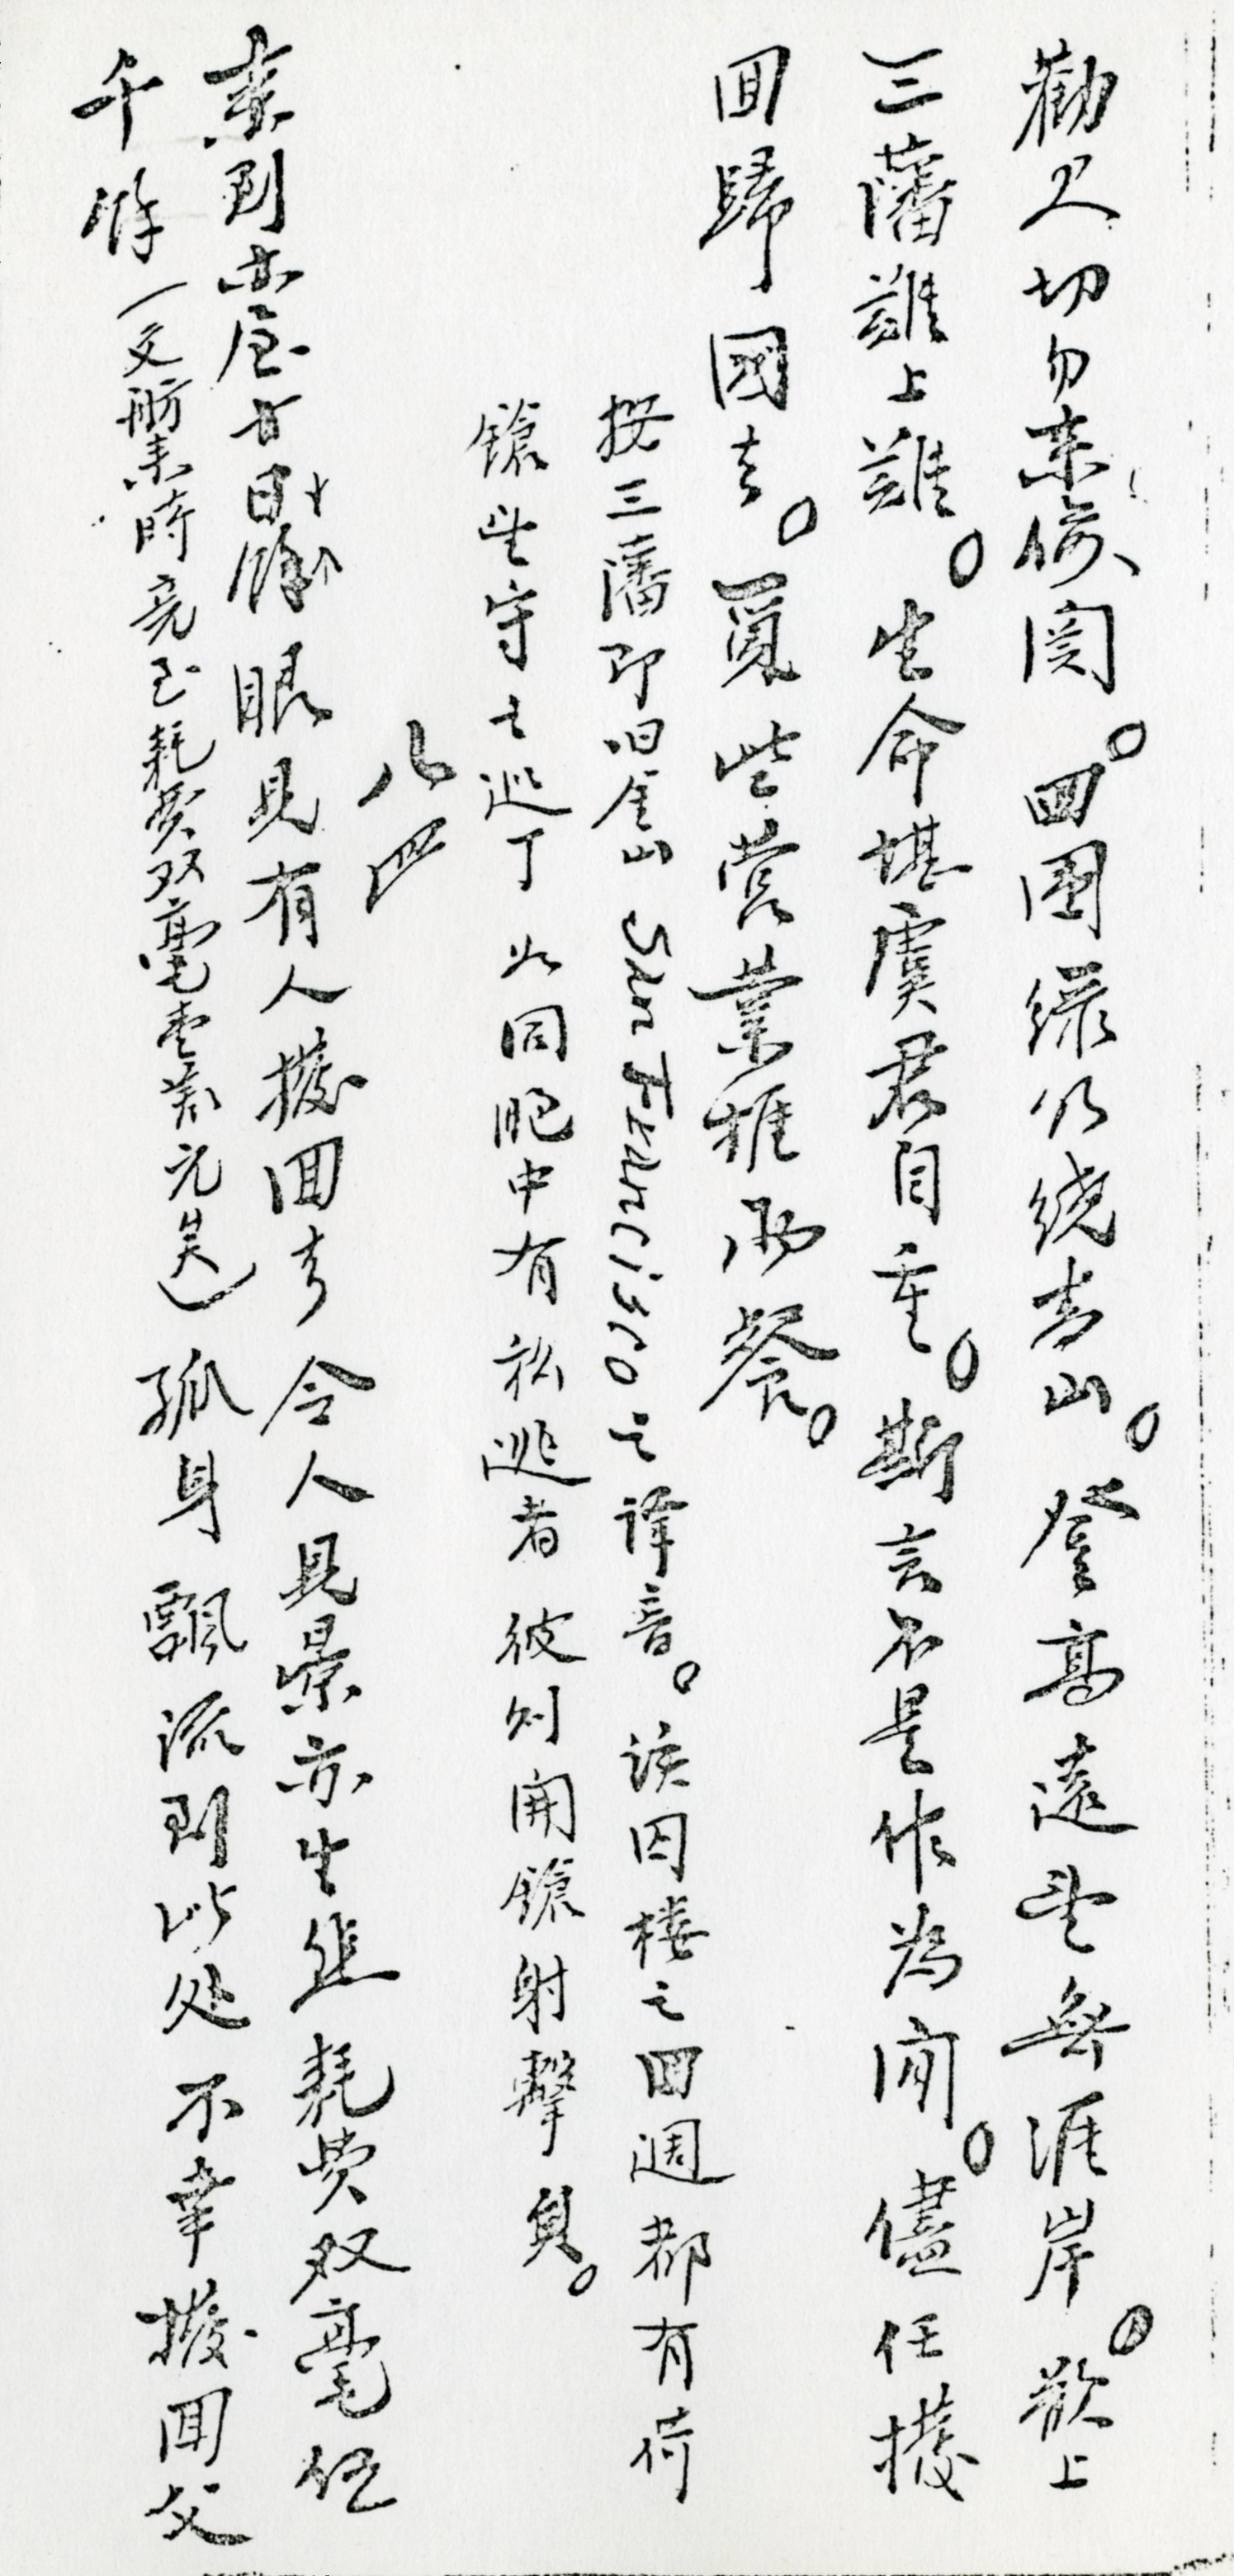 勸人切勿来偷関。四圍绿水绕青山。登高遠望無涯岸。欲上
三藩難上難。生命堪虞君自重。斯言不是作为閒。儘任撥
回歸國去。覓些营業推两餐。
按三藩即旧金山 San Francisco 之譯音。該囚楼之四週都有荷
鎗望守之巡丁 如同胞中有私逃者 彼则開鎗射擊負。
八四
来到木屋廿日餘 眼見有人撥回去 令人見景亦生悲 耗费双毫伍
千餘 一文 来時竟至耗费双毫壹萬元 孤身飄流到此处 不幸撥回父